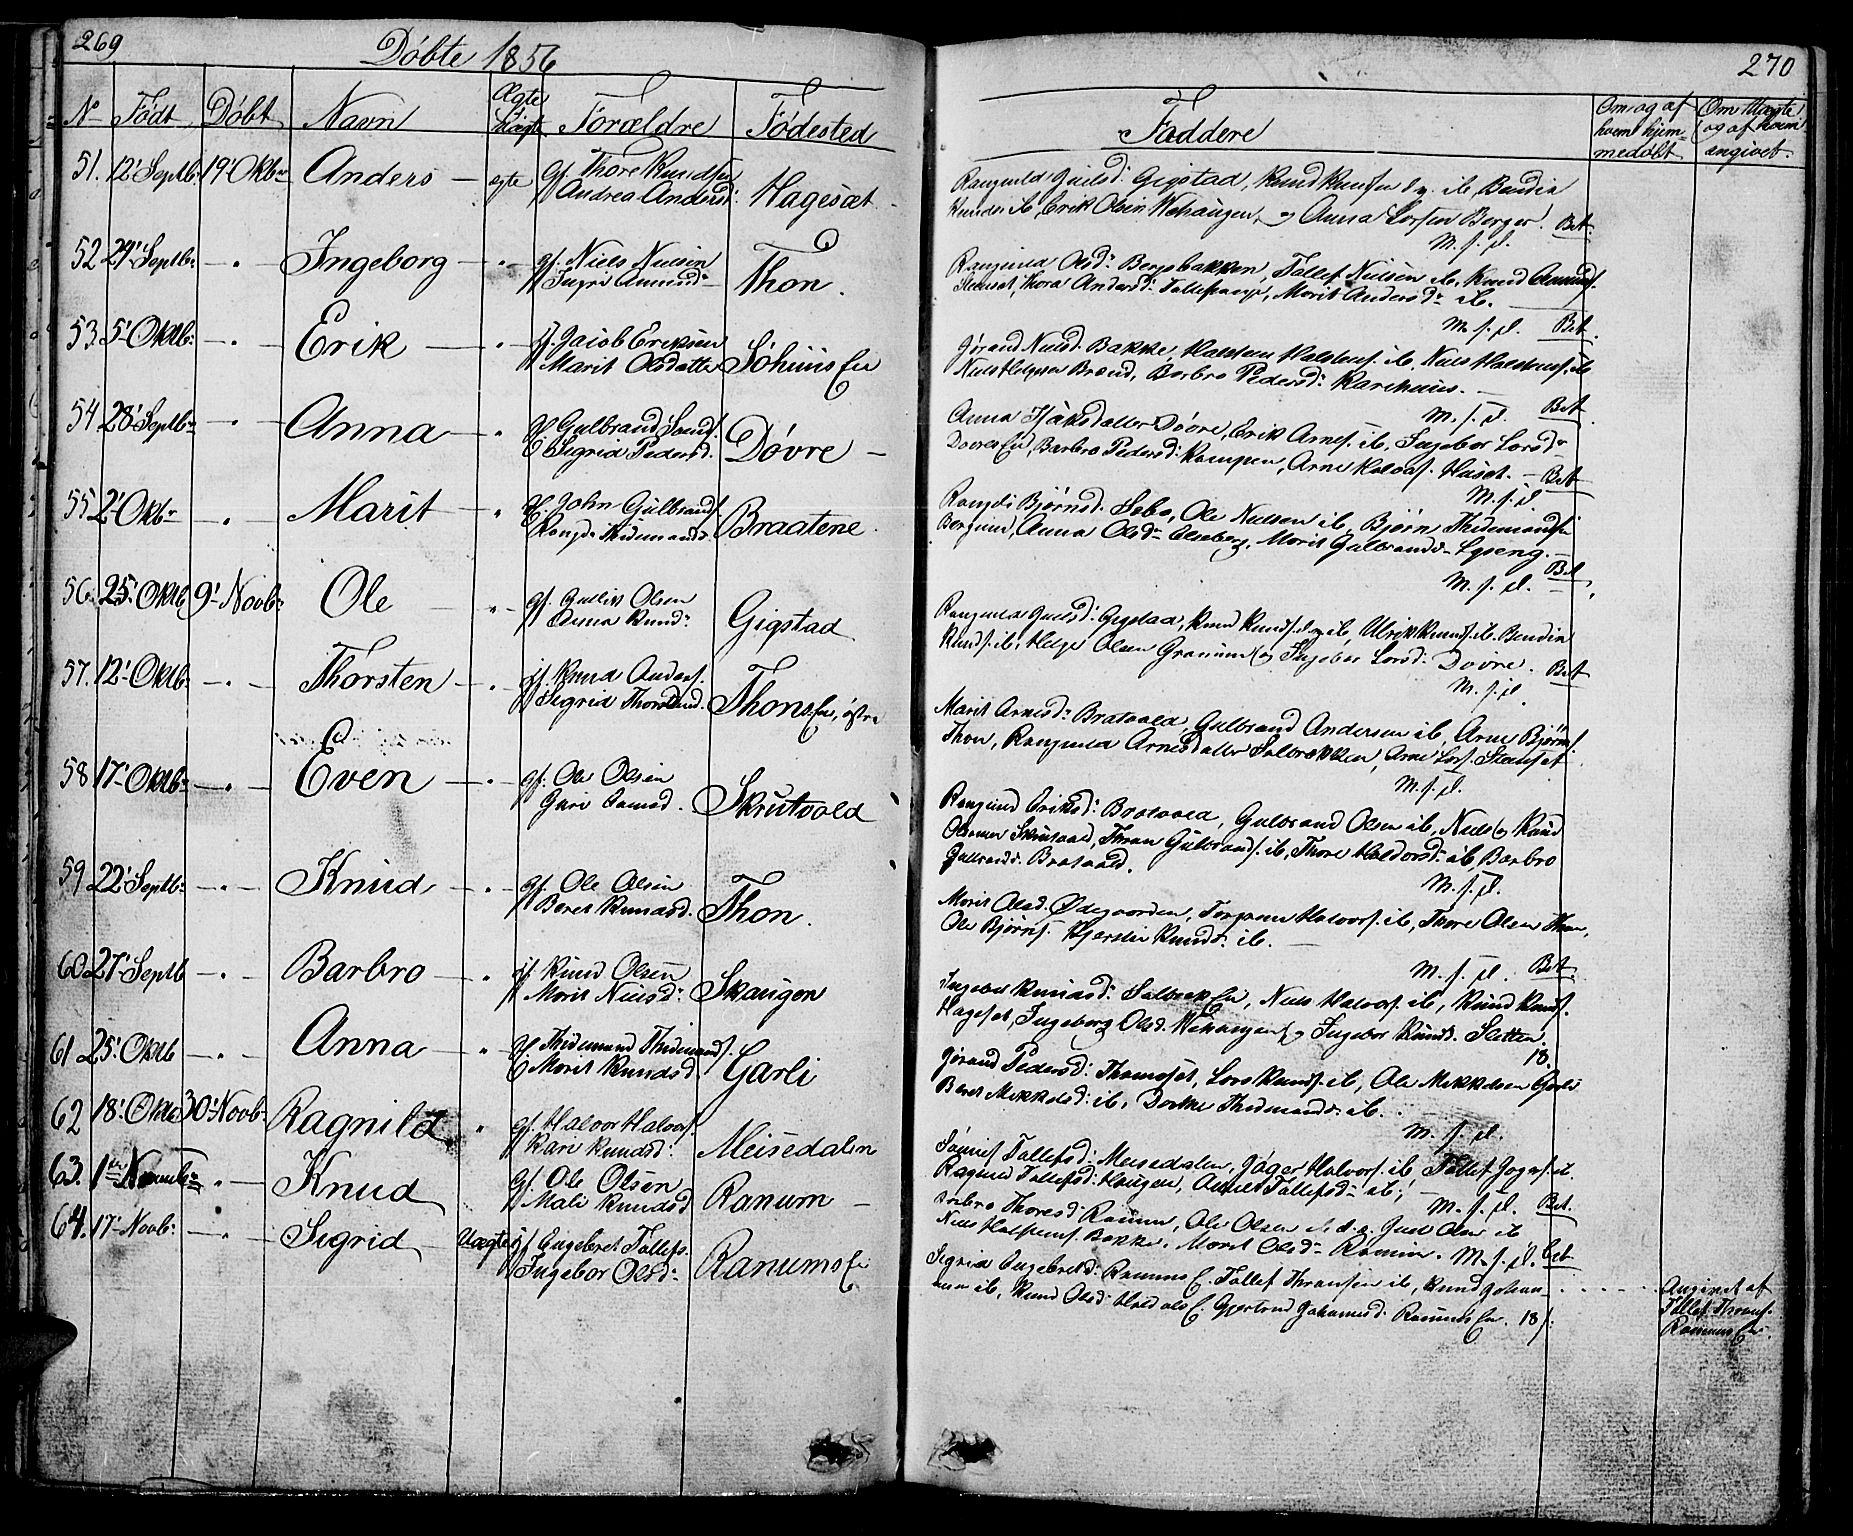 269
Døbte 1856
No Født Døbt Navn Ægte Uægte Forældre Fødested
51. 12' Septb: 19' Oktbr Anders - ægte gf. Thore Knudsen
ff Andrea Andersd: Hagesæt
52 24' Septbr - " - Ingeborg - " - gf. Niels Nielsen
ff Ingri Amundd: Thon.
53. 5' Oktb: - " - Erik - " - if. Jacob Eriksen
ff Marit Olsdatter Søhuus Eie
54 28' Septbr - " - Anna - " Gulbrand
Sigrid Pedersd. Døvre -
55 2' Oktbr - " - Marit - " John Gulbrands.
Rongd. Thidemandsd. Braatene.
56. 25' Oktb 9' Novb: Ole - " - gf. Gullik Olsen
ff Anna Knudsd: Gigstad
57. 12' Oktb: - " - Thorsten - " - if Knud Anders.
ff Sigrid Thorstensd. Thons Eie, østre
58 17' Oktb: - " - Even - " - gf. Ole Olsen
ff Guri Skrutvold
59 22' Septb: - " - Knud - " - gf. Ole Olsen
ff Beret Knudsd. Thon.
60. 27' Septb - " - Barbro - " if Knud Olsen
ff Marit Nielsd: Skaugen
61 25' Oktb - " - Anna - " Thidemand Thidemands.
Marit Knudsd Garli
62 18' Oktb 30' Novb: Ragnild " gf. Halvor Halvors.
ff Kari Knudsd: Meisedalen
63. 1ste Novembr - " - Knud gf. Ole Olsen
ff Mali Knudsd Ranum -
64. 17' Novb: - " - Sigrid Uægte if Engebret Tollefs.
ff Ingebor Olsd: Ranums Eie
270
Faddere
Om og af hvem hjem-
medøbt
Om Uægte
og af hvem
angivet.
Rangnild Guilsd: Gigstad, Knud Knudsen d. y. ib, Bendix
Knuds. ib, Erik Olsen Wehaugen, og Anna Larsen Berger. Bet.
M. f. fl.
Rangnild Olsd: Bergsbakken, Tollef Nielsen ib, Knud Amunds.
Stenset, Thora Andersd: , Marit Andersd: ib.
M. f. fl. Bet.
Jørand Nielsd. Bakke, Halsten Halstens. ib, Niels Halstens. ib
Niels Helgesen Brænd, Barbro Pedersd: Karihuus.
M. f. fl. Bet
Anna Isaksdatter Døvre, Erik Arnes. ib, Ingebor Larsd:
Døvres Eie, Barbro Pedersd: Kampen, Arne Halvors. Haset. Bet
M. f. fl
Rongdi Bjørnsd. Sebo, Ole Nielsen ib, Bjørn Thidemands.
Bergum, Anna Olsd: Elseberg, Marit Gulbrandsd: Lyseng.
M. f. fl. Bet
Rangnild Guilsd: Gigstad, Knud Knuds. d. y. ib, Ulrik Knuds. ib, Bendix
Knuds. ib, Helge Olsen Granum og Ingebor Larsd: Døvre. Bet
M. f. fl
Marit Arnesd: Bratvold, Gulbrand Andersen ib, Arne Bjørns.
Thon, Rangnild Arnesdatter Solbrekken, Arne Lars. Stenset
M. f. fl.
Rangnild Eriksd: Bratvold, Gulbrand Olsen ib, Niels og Knud
Olsønner Skrutvold, Thron Gulbrands. ib, Thore Haldorsd: ib, Barbro
Gulbrandsd. Bratvold.
M. f. fl.
Marit Olsd. Ødegaarden, Torgrim Halvors. ib, Thore Olsen Thon,
Ole Bjørns. Kjersti Knudsd: ib.
M. f. fl. Bet.
Ingebor Knudsd: Solbræk Eie, Niels Halvors. ib, Knud Knuds.
Hageset, Ingeborg Olsd. Wehaugen og Ingebor Knudsd. Sletten.
18.
Jørand Pedersd: Thomeset, Lars Knuds. ib, Ole Mikkelsen Garli
Beret Mikkelsd: ib, Dorthe Thidemandsd: ib.
M. f. fl.
Sønnif Tollefsd: Meisedalen, Jøger Halvors. ib, Tollef
Ragnild Tollefsd: Haugen, Annes Tollefsd: ib,
M. f. fl. Bet.
Barbro Thoresd: Ranum, Ole Olsen ib. d. y. Olsn ib
Niels Halstens. Bakke. Marit Olsd: Ranum. M. f. fl. Bet
Sigrid Engebretsd: Ranums E. Tollef Thronsen ib, Knud Johan-
nsen ib, Knud Olsd: E. Gjertrud Johannesd. Ranums Eie. 18/.
Angivet af
Tollef Throns.
Ranums Eie.